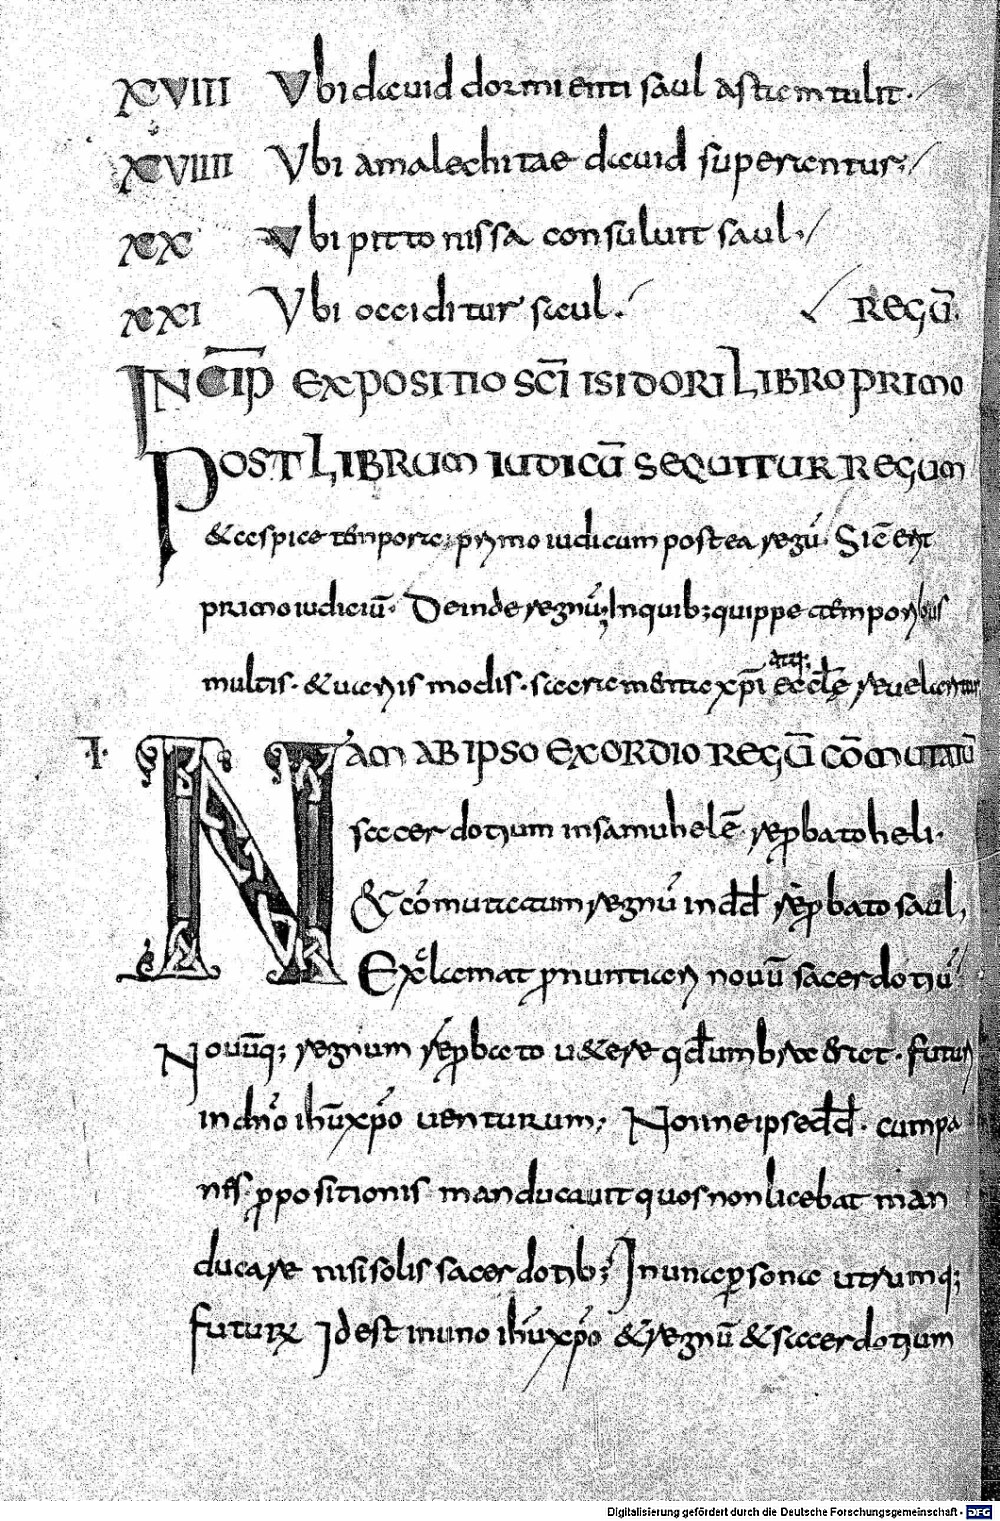 XVIII Ubi dauid dormienti saul astam tulit.
XVIIII Ubi amalechitae dauid superantur;
XX Ubi pittonissa consuluit saul.
XXI Ubi occiditur saul. REGŪ.
INCIP̄ EXPOSITIO SC̄I ISIDORI LIBRO PRIMO
POST LIBRUM IUDICŪ SEQUITUR REGUM
& aspice tempora; primo iudicum postea regū. Sic̄ erit
primo iudiciū. Deinde regnū; In quib; quippe a temporibus
multis. & uariis modis. sacramenta xp̄i atq; eccl̄ę reuelantur
.I. NAM AB IPSO EXORDIO REGŪ COMUTATŪ
sacerdotium in samuhelē rep̱bato heli.
& cōmutatum regnū in dd̄ rep̱bato saul,
Exclamat p̱nuntiari nouū sacerdotiū
Nouūq; regnum rep̱bato uetere qđ umbra erat. futuri
in dn̄o ih̄u xp̄o uenturum; Nonne ipse dd̄. cum pa
nes p̱positionis manducauit quos non licebat man
ducare nisi solis sacerdotib; In una p̱sona utrumq;
futurū Id est in uno ih̄u xp̄o & regnū & sacerdotium
Digitalisierung gefördert durch die Deutsche Forschungsgemeinschaft - DFG